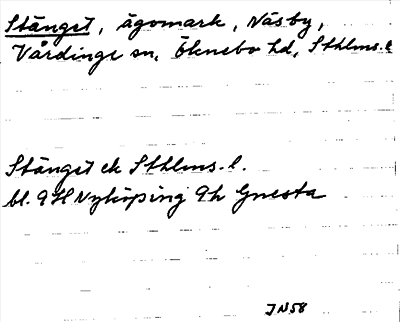 Stänget, ägomark, Näsby,
Vårdinge sn, Öknebo hd, Sthlms. l
Stänget ek Sthlms. l.
bl. 9H Nyköping 9h Gnesta
JN58